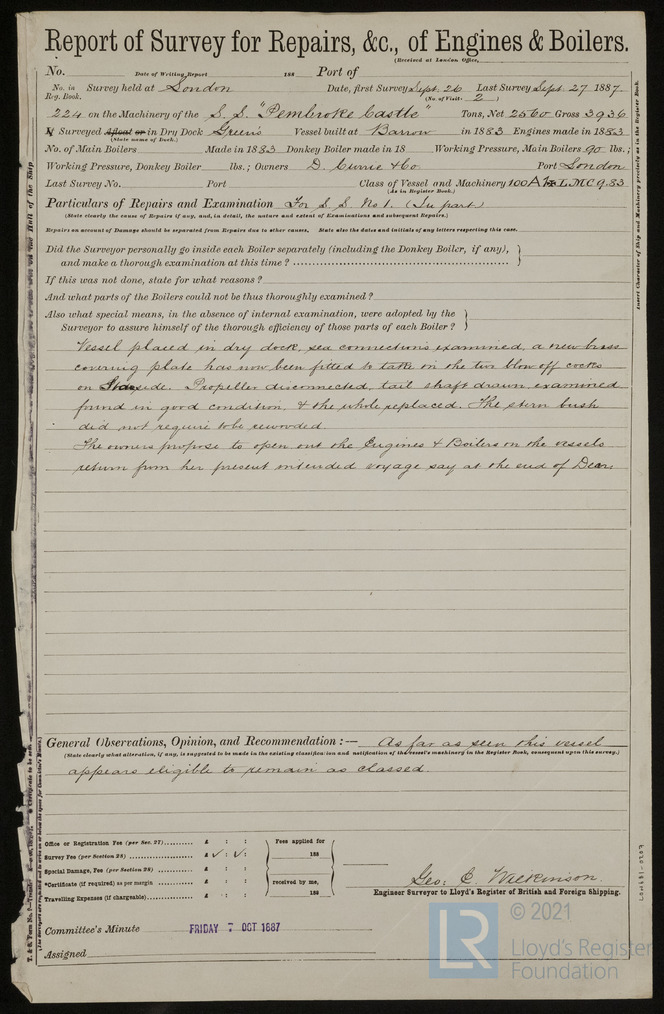 Report of Survey for Repairs, &c., of Engines & Boilers.
(Received at London Office,
No. Date of Writing Report 188 Port of
No. in Reg. Book. Survey held at London Date, first Survey Sept. 26 Last Survey Sept. 27 1887
(No. of Visits 2 )
224 on the Machinery of the S. S. "Pembroke Castle" Tons, Net 2560 Gross 3936
Surveyed Afloat or in Dry Dock Green's Vessel built at Barrow in 1883 Engines made in 1883
(State name of Dock.)
No. of Main Boilers Made in 1883 Donkey Boiler made in 18 Working Pressure, Main Boilers 90 lbs.;
Working Pressure, Donkey Boiler lbs.; Owners D. Currie & Co Port London
Last Survey No. Port Class of Vessel and Machinery 100A1 LMC 9.83
(As in Register Book.)
Particulars of Repairs and Examination For S. S. No 1. (In part)
(State clearly the cause of Repairs if any, and, in detail, the nature and extent of Examinations and subsequent Repairs.)
Repairs on account of Damage should be separated from Repairs due to other causes, State also the dates and initials of any letters respecting this case.
Did the Surveyor personally go inside each Boiler separately (including the Donkey Boiler, if any),
and make a thorough examination at this time ?
If this was not done, state for what reasons ?
And what parts of the Boilers could not be thus thoroughly examined ?
Also what special means, in the absence of internal examination, were adopted by the
Surveyor to assure himself of the thorough efficiency of those parts of each Boiler ?
Vessel placed in dry dock, sea connections examined, a new brass
covering plate has now been fitted to take on the two blow off cocks
on Starside. Propeller disconnected, tail shaft drawn, examined
found in good condition, & the whole replaced. The stern bush
did not require to be rewooded.
The owners propose to open out the Engines & Boilers on the vessels
return from her present intended voyage say at the end of Decr.
General Observations, Opinion, and Recommendation :— As far as seen this vessel
(State clearly what alteration, if any, is suggested to be made in the existing classification and notification of the vessel's machinery in the Register Book, consequent upon this survey.)
appears eligible to remain as classed.
Office or Registration Fee (per Sec. 27) £ : :
Survey Fee (per Section 28) £ : :
Special Damage, Fee (per Section 28) £ : :
*Certificate (if required) as per margin £ : :
Travelling Expenses (if chargeable) £ : :
Fees applied for
188
received by me,
188
Geo: C. Wilkinson.
Engineer Surveyor to Lloyd's Register of British and Foreign Shipping.
Committee's Minute FRIDAY 7 OCT 1887
Assigned
Insert Character of Ship and Machinery precisely as in the Register Book.
LR
© 2021
Lloyd's Register
Foundation